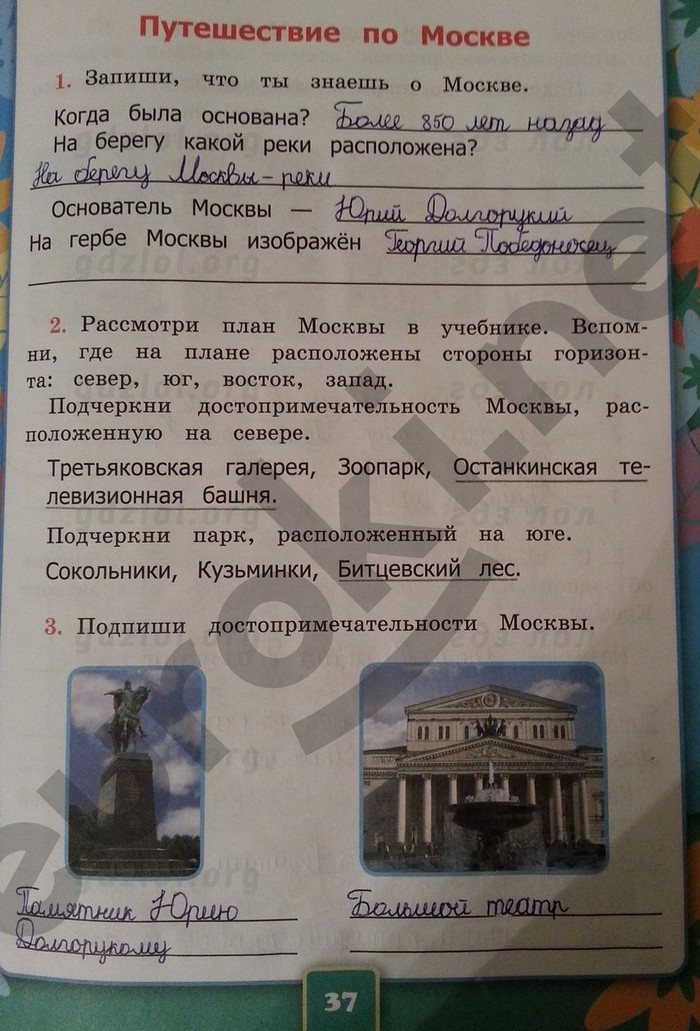 Путешествие по Москве
1. Запиши, что ты знаешь о Москве.
Когда была основана? Более 850 лет назад
На берегу какой реки расположена?
На берегу Москвы-реки
Основатель Москвы — Юрий Долгорукий
На гербе Москвы изображён Георгий Победоносец
2. Рассмотри план Москвы в учебнике. Вспом-
ни, где на плане расположены стороны горизон-
та: север, юг, восток, запад.
Подчеркни достопримечательность Москвы, рас-
положенную на севере.
Третьяковская галерея, Зоопарк, Останкинская те-
левизионная башня.
Подчеркни парк, расположенный на юге.
Сокольники, Кузьминки, Битцевский лес.
3. Подпиши достопримечательности Москвы.
Памятник Юрию Большой театр
Долгорукому
37
euroki.net
gdzlol.org
гдз лол